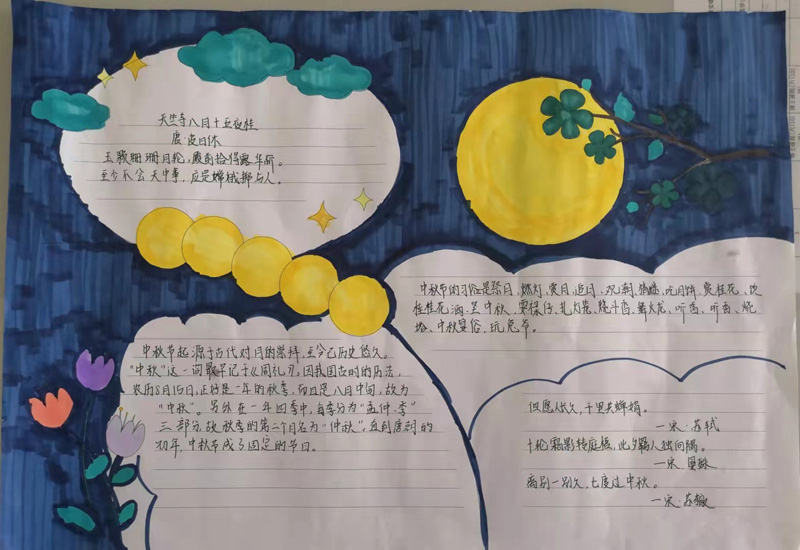 天竺寺八月十五夜桂
唐·皮日休
玉颗珊珊下月轮,殿前拾得露华新。
至今不会天中事,应是嫦娥掷与人。
中秋节的习俗是祭月、燃灯、赏月、追月、观潮、猜谜、吃月饼、赏桂花、饮
桂花酒、兰中秋、耍禄仔、扎灯笼、烧斗香、舞火龙、听香、听香、烧
塔、中秋宴俗、玩兔爷。
中秋节起源于古代对月的崇拜,至今已历史悠久。
“中秋”这一词最早记于《周礼》,因我国古时的历法,
农历8月15日,正好是一年的秋季,而且是八月中旬,故为
“中秋”。另外在一年四季中,每季分为“孟仲季”
三部分,故秋季的第二个月名为“仲秋”,直到唐朝的
初年,中秋节成了固定的节日。
但愿人长久,千里共婵娟。
—宋·苏轼
十轮霜影转庭梧,此夕羁人独向隅。
—宋
离别一别久,七度过中秋。
—宋·苏辙